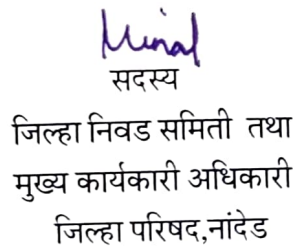 Minal
सदस्य
जिल्हा निवड समिती तथा
मुख्य कार्यकारी अधिकारी
जिल्हा परिषद,नांदेड